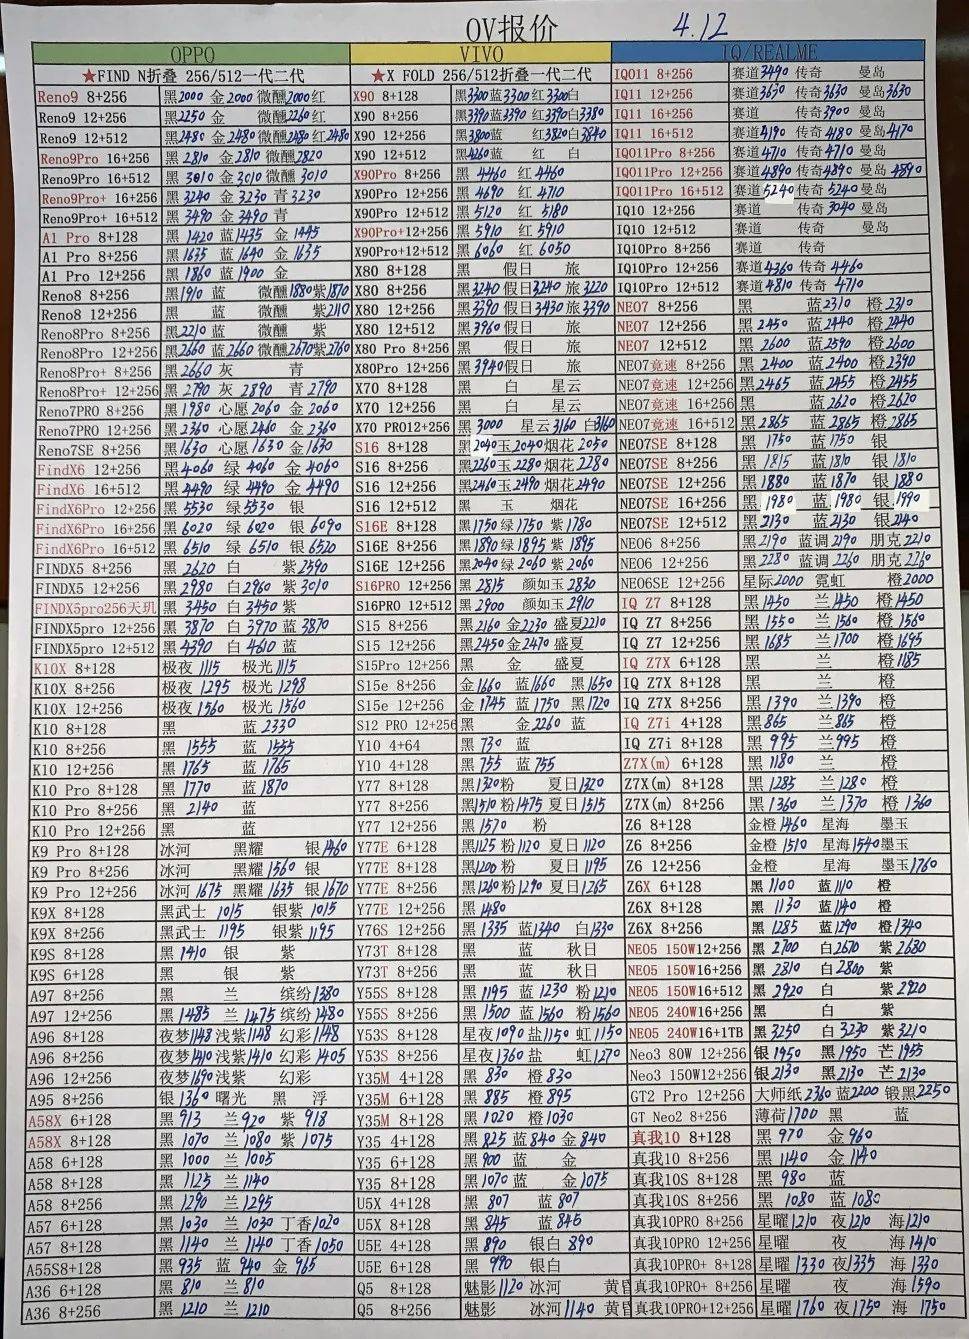 OV报价 4.12
OPPO VIVO IQ/REALME
★FIND N折叠 256/512一代二代 ★X FOLD 256/512折叠一代二代 IQ011 8+256 赛道3490 传奇 曼岛
Reno9 8+256 黑2000 金2000 微醺2000红 X90 8+128 黑3300蓝3300红3300白 IQ11 12+256 赛道3630 传奇3630 曼岛3630
Reno9 12+256 黑2250 金 微醺2260红 X90 8+256 黑3390蓝3390红3390白3380 IQ11 16+256 赛道 传奇3900 曼岛
Reno9 12+512 黑2480 金2480微醺2480红2480 X90 12+256 黑3800蓝 红3820白3840 IQ11 16+512 赛道4190 传奇4180 曼岛4170
Reno9Pro 16+256 黑2810 金2810 微醺2820 X90 12+512 黑4260蓝 红 白 IQ011Pro 8+256 赛道4710 传奇4710 曼岛
Reno9Pro 16+512 黑3010 金3010 微醺3010 X90Pro 8+256 黑4460 红4460 IQ011Pro 12+256 赛道4890 传奇4890 曼岛4890
Reno9Pro+ 16+256 黑3240 金3230 青3230 X90Pro 12+256 黑4690 红4710 IQ011Pro 16+512 赛道5240 传奇5240 曼岛
Reno9Pro+ 16+512 黑3490 金3490 青 X90Pro 12+512 黑5120 红5180 IQ10 12+256 赛道 传奇3040 曼岛
A1 Pro 8+128 黑1420 蓝1435 金1445 X90Pro+12+256 黑5910 红5910 IQ10 12+512 赛道 传奇 曼岛
A1 Pro 8+256 黑1635 蓝1640 金1635 X90Pro+12+512 黑6060 红6050 IQ10Pro 8+256 赛道 传奇
A1 Pro 12+256 黑1860 蓝1900 金 X80 8+128 黑 假日 旅 IQ10Pro 12+256 赛道4360 传奇4460
Reno8 8+256 黑1910 蓝 微醺1880紫1870 X80 8+256 黑3240假日3240旅3220 IQ10Pro 12+512 赛道4810 传奇4710
Reno8 12+256 黑 蓝 微醺 紫2110 X80 12+256 黑3390假日3430旅3390 NEO7 8+256 黑 蓝2310 橙2310
Reno8Pro 8+256 黑2210 蓝 微醺 紫 X80 12+512 黑3960假日 旅 NEO7 12+256 黑2450 蓝2440 橙2440
Reno8Pro 12+256 黑2660 蓝2660 微醺2670紫2760 X80 Pro 8+256 黑 假日 旅 NEO7 12+512 黑2600 蓝2590 橙2600
Reno8Pro+ 8+256 黑2660 灰 青 X80Pro 12+256 黑3940假日 旅 NEO7竞速 8+256 黑2400 蓝2400 橙2390
Reno8Pro+ 12+256 黑2790 灰2890 青2790 X70 8+128 黑 白 星云 NEO7竞速 12+256 黑2465 蓝2455 橙2455
Reno7PRO 8+256 黑1980 心愿2060 金2060 X70 12+256 黑 白 星云 NEO7竞速 16+256 黑 蓝2620 橙2620
Reno7PRO 12+256 黑2360 心愿2460 金2360 X70 PRO12+256 黑3000 星云3160 白3160 NEO7竞速 16+512 黑2865 蓝2865 橙2865
Reno7SE 8+256 黑1630 心愿1630 金1630 S16 8+128 黑2040玉2040烟花2050 NEO7SE 8+128 黑1750 蓝1750 银
FindX6 12+256 黑4060 绿4060 金4060 S16 8+256 黑2260玉2280烟花2280 NEO7SE 8+256 黑1815 蓝1810 银1810
FindX6 16+512 黑4490 绿4490 金4490 S16 12+256 黑2460玉2490烟花2490 NEO7SE 12+256 黑1880 蓝1870 银1880
FindX6Pro 12+256 黑5530 绿5530 银 S16 12+512 黑 玉 烟花 NEO7SE 16+256 黑1980 蓝1980 银1990
FindX6Pro 16+256 黑6020 绿6020 银6090 S16E 8+128 黑1750绿1750紫1780 NEO7SE 12+512 黑2130 蓝2130 银2140
FindX6Pro 16+512 黑6510 绿6510 银6520 S16E 8+256 黑1890绿1895紫1895 NEO6 8+256 黑2190 蓝调2190 朋克2210
FINDX5 8+256 黑2620 白 紫2590 S16E 12+256 黑2040绿2060紫2060 NEO6 12+256 黑2280 蓝调2260 朋克2260
FINDX5 12+256 黑2980 白2960 紫3010 S16PRO 12+256 黑2815 颜如玉2830 NEO6SE 12+256 星际2000 霓虹 橙2000
FINDX5pro256天玑 黑3450 白3450紫 S16PRO 12+512 黑2900 颜如玉2910 IQ Z7 8+128 黑1450 兰1450 橙1450
FINDX5pro 12+256 黑3870 白3970蓝3870 S15 8+256 黑2160金2230盛夏2210 IQ Z7 8+256 黑1550 兰1560 橙1560
FINDX5pro 12+512 黑4390 白4610蓝 S15 12+256 黑2450金2470盛夏 IQ Z7 12+256 黑1685 兰1700 橙1695
K10X 8+128 极夜1115 极光1115 S15Pro 12+256 黑 金 盛夏 IQ Z7X 6+128 黑 兰 橙1185
K10X 8+256 极夜1295 极光1298 S15e 8+256 金1660 蓝1660 黑1650 IQ Z7X 8+128 黑 兰 橙
K10X 12+256 极夜1560 极光1560 S15e 12+256 金1745 蓝1750 黑1720 IQ Z7X 8+256 黑1390 兰1390 橙
K10 8+128 黑 蓝2330 S12 PRO 12+256 黑 金2260 蓝 IQ Z7i 4+128 黑865 兰865 橙
K10 8+256 黑1555 蓝1555 Y10 4+64 黑730 蓝 IQ Z7i 8+128 黑995 兰995 橙
K10 12+256 黑1765 蓝1765 Y10 4+128 黑755 蓝755 Z7X(m) 6+128 黑1180 兰 橙
K10 Pro 8+128 黑1770 蓝1870 Y77 8+128 黑1320粉 夏日1320 Z7X(m) 8+128 黑1285 兰1280 橙
K10 Pro 8+256 黑2140 蓝 Y77 8+256 黑1510粉1475夏日1515 Z7X(m) 8+256 黑1360 兰1370 橙1360
K10 Pro 12+256 黑 蓝 Y77 12+256 黑1570 粉 Z6 8+128 金橙1460 星海 墨玉
K9 Pro 8+128 冰河 黑耀 银1460 Y77E 6+128 黑1125粉1120 夏日1120 Z6 8+256 金橙1510 星海1540墨玉
K9 Pro 8+256 冰河 黑耀1560 银 Y77E 8+128 黑1200粉 夏日1195 Z6 12+256 金橙 星海 墨玉1760
K9 Pro 12+256 冰河1675 黑耀1635 银1670 Y77E 8+256 黑1260粉1290 夏日1265 Z6X 6+128 黑1100 蓝1110 橙
K9X 8+128 黑武士1015 银紫1015 Y77E 12+256 黑1480 Z6X 8+128 黑1130 蓝1140 橙
K9X 8+256 黑武士1195 银紫1195 Y76S 12+256 黑1335 蓝1340 白1330 Z6X 8+256 黑1285 蓝1290 橙1340
K9S 8+128 黑1410 银 紫 Y73T 8+128 黑 蓝 秋日 NEO5 150W12+256 黑2700 白2670 紫2680
K9S 6+128 黑 银 紫 Y73T 8+256 黑 蓝 秋日 NEO5 150W16+256 黑2810 白2800 紫
A97 8+256 黑 兰 缤纷1380 Y55S 8+128 黑1195 蓝1230 粉1210 NEO5 150W16+512 黑2920 白 紫2920
A97 12+256 黑1485 兰1475缤纷1480 Y55S 8+256 黑1500 蓝1560 粉1560 NEO5 240W16+256 黑 白 紫
A96 8+128 夜梦1148浅紫1148 幻彩1148 Y53S 8+128 星夜1090盐1150 虹1150 NEO5 240W16+1TB 黑3250 白3230 紫3210
A96 8+256 夜梦1410浅紫1410 幻彩1405 Y53S 8+256 星夜1360盐 虹1270 Neo3 80W 12+256 银1950 黑1950 芒1955
A96 12+256 夜梦1690浅紫 幻彩 Y35M 4+128 黑830 橙830 Neo3 150W12+256 银2130 黑2130 芒2130
A95 8+256 银1360 曙光 黑 浮 Y35M 6+128 黑885 橙895 GT2 Pro 12+256 大师纸2360蓝2200 锻黑2250
A58X 6+128 黑913 兰920 紫918 Y35M 8+128 黑1020 橙1030 GT Neo2 8+256 薄荷1700 黑 蓝
A58X 8+128 黑1070 兰1080 紫1075 Y35 4+128 黑825蓝840金840 真我10 8+128 黑970 金960
A58 6+128 黑1000 兰1005 Y35 6+128 黑900 蓝 金 真我10 8+256 黑1140 金1140
A58 8+128 黑1125 兰1140 Y35 8+128 黑1070蓝 金1075 真我10S 8+128 黑980 蓝
A58 8+256 黑1290 兰1295 U5X 4+128 黑807 蓝807 真我10S 8+256 黑1080 蓝1080
A57 6+128 黑1030 兰1030 丁香1020 U5X 8+128 黑845 蓝845 真我10PRO 8+256 星曜1210 夜1210 海1210
A57 8+128 黑1140 兰1140 丁香1050 U5E 4+128 黑890 银白890 真我10PRO 12+256 星曜 夜 海1410
A55S8+128 黑935 蓝940 金965 U5E 6+128 黑990 银白 真我10PRO+ 8+128 星曜1330夜1335 海1330
A36 6+128 黑810 兰810 Q5 8+128 魅影1120冰河 黄昏 真我10PRO+ 8+256 星曜 夜 海1590
A36 8+256 黑1210 兰1210 Q5 8+256 魅影 冰河1140黄昏 真我10PRO+12+256 星曜1760 夜1750 海1750